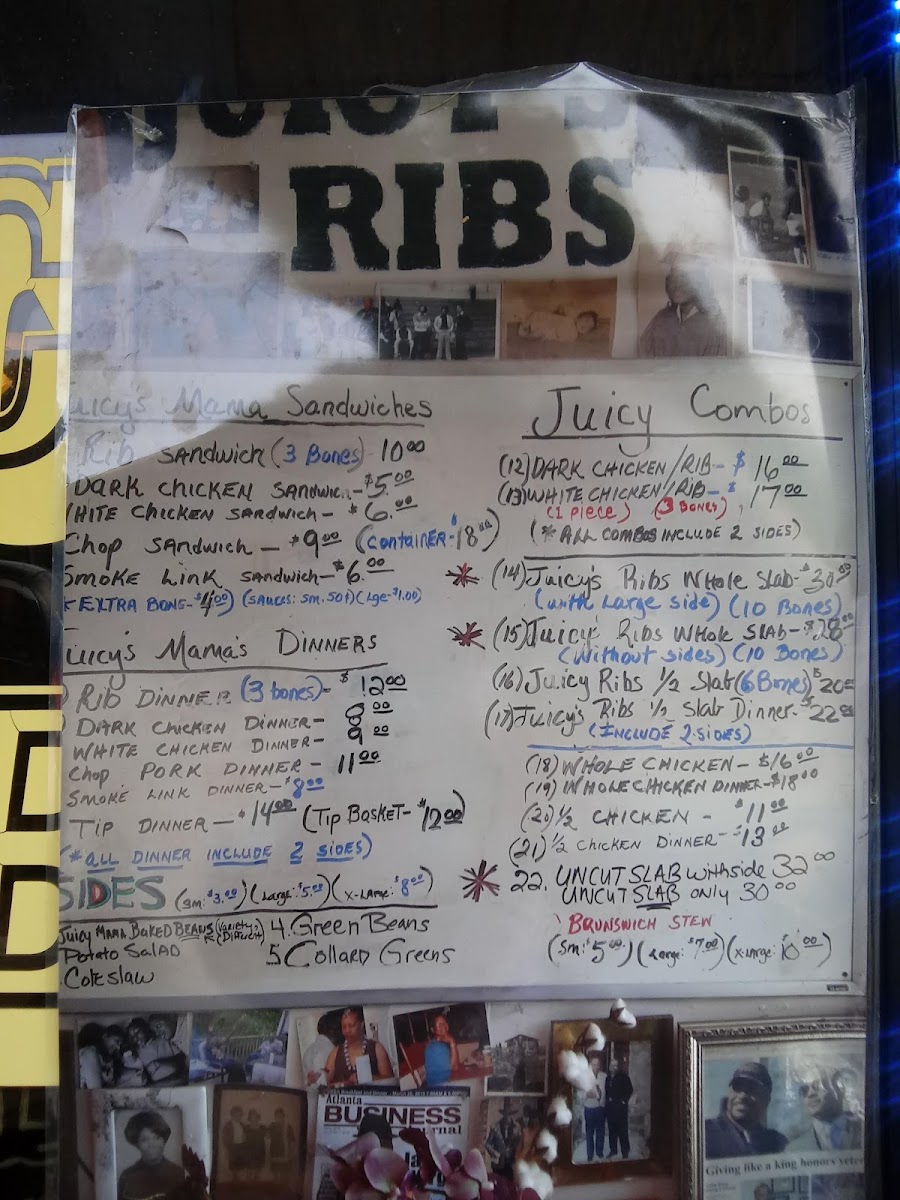 RIBS
uicy's Mama Sandwiches
Rib Sandwich (3 Bones) 10.00
Dark Chicken Sandwich - $5.00
hite Chicken Sandwich - $6.00
Chop Sandwich - $9.00 (Container - $18.00)
Smoke Link Sandwich - $6.00
EXTRA BONS - $4.00) (SAUCES: SM. 50¢) (Lge - $1.00)
uicy's Mama's Dinners
Rib Dinner (3 bones) - $12.00
Dark Chicken Dinner - 8.00
White Chicken Dinner - 9.00
Chop Pork Dinner - 11.00
Smoke Link Dinner - $8.00
Tip Dinner - $14.00 (Tip Basket - $12.00)
(* all Dinner include 2 sides)
SIDES (Sm: $3.00) (Large: $5.00) (X-Large: $8.00)
Juicy Mama Baked Beans
Potato Salad
Coleslaw
4. Green Beans
5 Collard Greens
Juicy Combos
(12) Dark Chicken/Rib - $16.00
(13) White Chicken/Rib - $17.00
(1 piece) (3 Bones)
(* All Combos include 2 sides)
* (14) Juicy's Ribs Whole Slab - $30.00
(with Large side) (10 Bones)
* (15) Juicy's Ribs Whole Slab - $28.00
(without sides) (10 Bones)
(16) Juicy Ribs 1/2 Slab (6 Bones) $20.00
(17) Juicy's Ribs 1/2 Slab Dinner - $22.00
(Include 2 sides)
(18) Whole Chicken - $16.00
(19) Whole Chicken Dinner - $18.00
(20) 1/2 Chicken - $11.00
(21) 1/2 Chicken Dinner - $13.00
* 22. Uncut Slab with side 32.00
Uncut Slab only 30.00
Brunswich Stew
(Sm: $5.00) (Large: $7.00) (X-Large: $10.00)
Atlanta
BUSINESS
Giving like a king honors